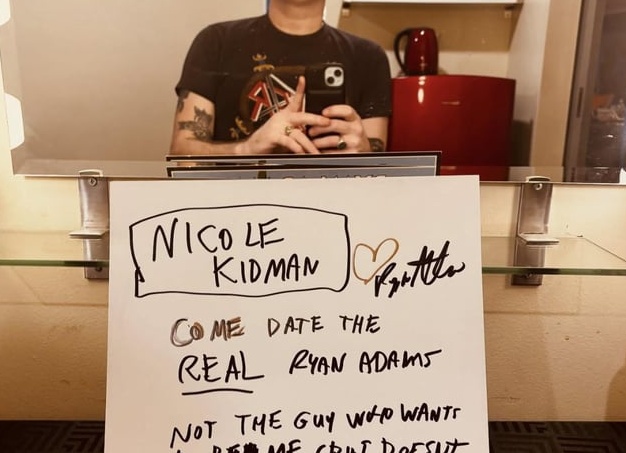 NICOLE
KIDMAN
COME DATE THE
REAL RYAN ADAMS
NOT THE GUY WHO WANTS
ME DOESN'T